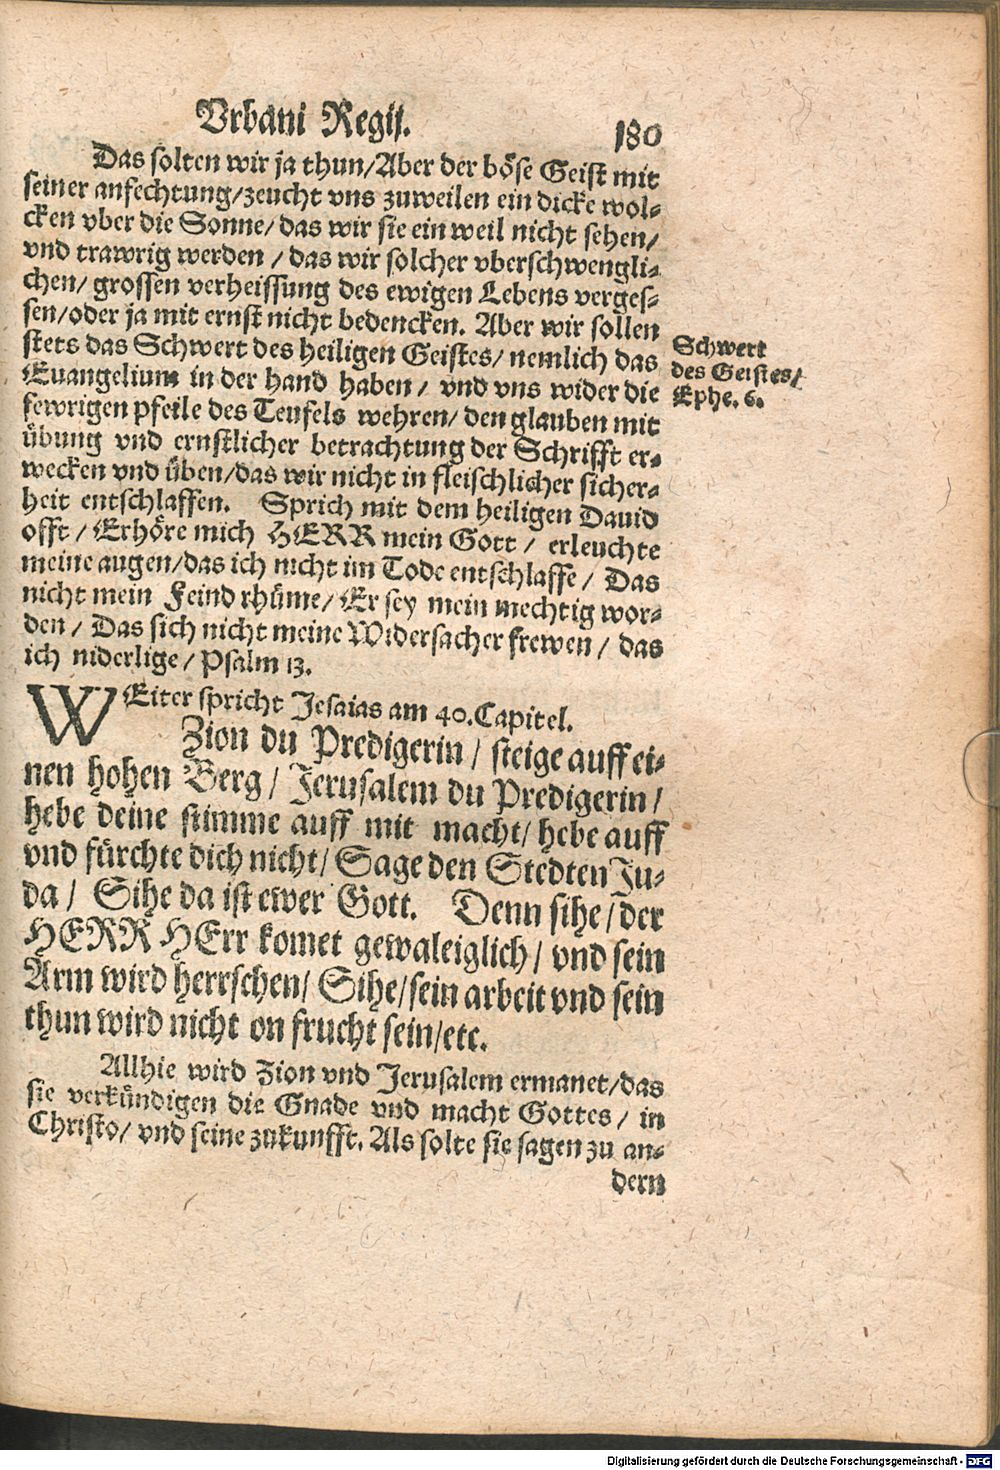 Vrbani Regij.
180
Das solten wir ja thun/Aber der böse Geist mit
seiner anfechtung/zeucht vns zuweilen ein dicke wol-
cken vber die Sonne/das wir sie ein weil nicht sehen/
vnd trawrig werden/das wir solcher vberschwengli-
chen/grossen verheissung des ewigen Lebens verges-
sen/oder ja mit ernst nicht bedencken. Aber wir sollen
stets das Schwert des heiligen Geistes/nemlich das
Euangelium in der hand haben/ vnd vns wider die
fewrigen pfeile des Teufels wehren/den glauben mit
übung vnd ernstlicher betrachtung der Schrifft er-
wecken vnd üben/das wir nicht in fleischlicher sicher-
heit entschlaffen. Sprich mit dem heiligen Dauid
offt/Erhöre mich HERR mein Gott/ erleuchte
meine augen/das ich nicht im Tode entschlaffe/ Das
nicht mein Feind rhüme/Er sey mein mechtig wor-
den/ Das sich nicht meine Widersacher frewen/ das
ich niderlige/Psalm 13.
Schwert
des Geistes/
Ephe. 6.
WEiter spricht Jesaias am 40.Capitel.
Zion du Predigerin/ steige auff ei-
nen hohen Berg/ Jerusalem du Predigerin/
hebe deine stimme auff mit macht/ hebe auff
vnd fürchte dich nicht/ Sage den Stedten Ju-
da/ Sihe da ist ewer Gott. Denn sihe/der
HERR HErr komet gewaleiglich/ vnd sein
Arm wird herrschen/ Sihe/sein arbeit vnd sein
thun wird nicht on frucht sein/etc.
Allhie wird Zion vnd Jerusalem ermanet/das
sie verkündigen die Gnade vnd macht Gottes/ in
Christo/ vnd seine zukunfft. Als solte sie sagen zu an-
dern
Digitalisierung gefördert durch die Deutsche Forschungsgemeinschaft - DFG